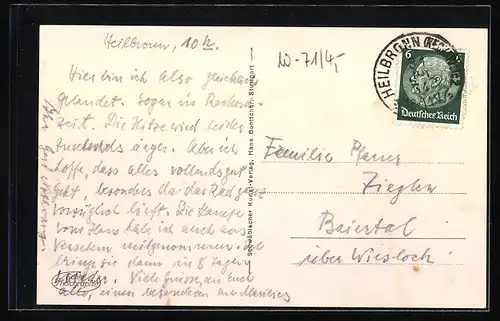 Heilbronn, 10 h.
Hier bin ich also glücklich
gelandet. Sogar in Rekord-
Zeit. Die Hitze wird leider
zusehends ärger. Aber ich
hoffe, dass alles vollends gut
geht, besonders da das Rad ganz
vorzüglich läuft. Die
vom Hans hab ich auch aus
Versehen mitgenommen. Ich
bringe sie dann in 8 Tagen
wieder. Viele Grüsse an Euch
alle, einen besonderen an
10-71/4,-
Schwäbischer Kunst-Verlag, Hans Boettcher, Stuttgart
HEILBRONN (NECKAR)
6 6
Deutsches Reich
Familie
Ziegler
Baiertal
über Wiesloch